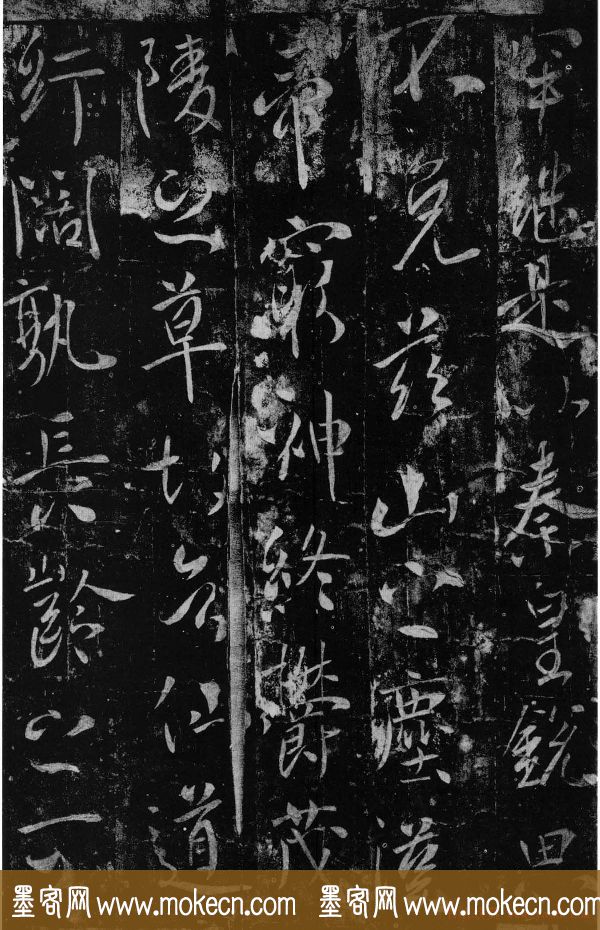 罕繼是以秦皇銳思
不免茲山之塵漢
帝窮神終鬱茂
陵之草仙道
紆闊孰長齡之
墨客网 www.mokecn.com 墨客网 www.mokecn.com